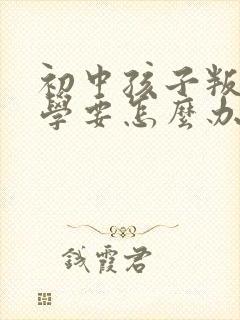 初中孩子叛
學要怎麼办
錢霞君